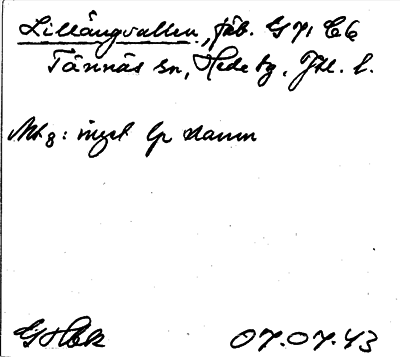 Lillängvallen, fäb. G 71 C6
Tännäs sn, Hede tg, Jtl. l.
Mtg: inget lp namn
07.07.43